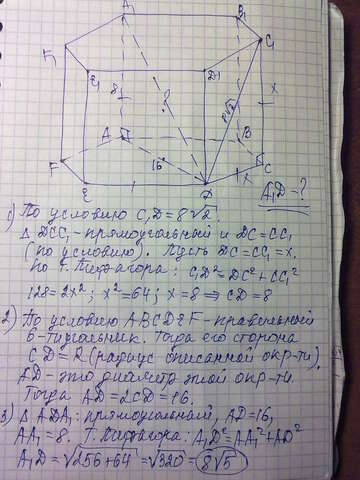 A₁
B₁
C₁
F₁
E₁
D₁
8
8√2
x
A
B
F
16
C
x
E
D
A₁D-?
1) По условию C₁D=8√2.
Δ DCC₁-прямоугольный и DC=CC₁
(по условию). Пусть DC=CC₁=x.
По т. Пифагора: C₁D²=DC²+CC₁²
128=2x²; x²=64; x=8 ⇒ CD=8
2) По условию ABCDEF-правильный
6-тиугольник. Тогда его сторона
CD=R (радиус описанной окр-ти).
AD-это диаметр этой окр-ти.
Тогда AD=2CD=16.
3) Δ ADA₁: прямоугольный, AD=16,
AA₁=8. Т. Пифагора: A₁D²=AA₁²+AD²
A₁D=√256+64=√320=8√5